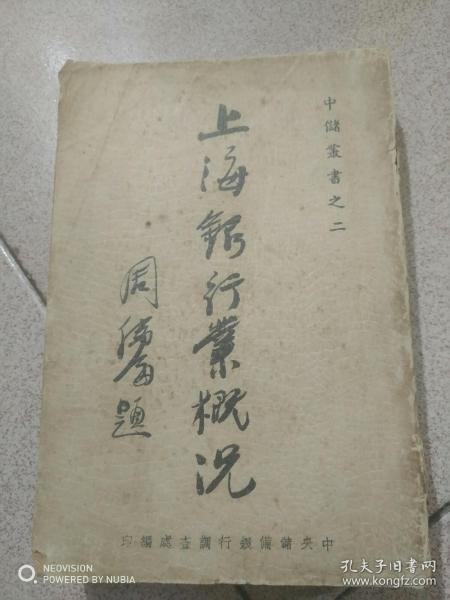 中儲叢書之二
上海銀行業概況
周題
中央儲備銀行調查處編印
NEOVISION
POWERED BY NUBIA
孔夫子旧书网